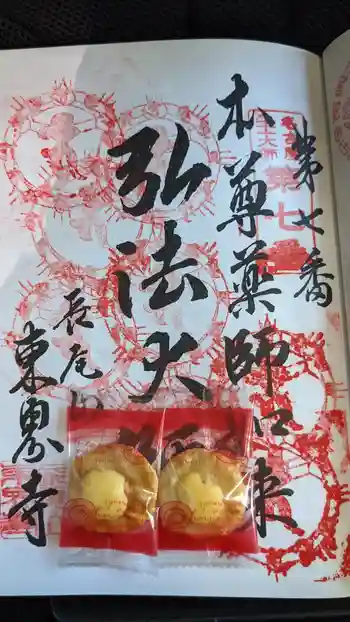 第七番
第七
本尊薬師如来
弘法大師
長尾
東界寺